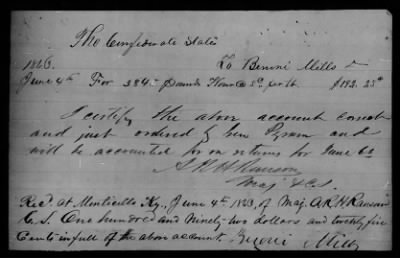 The Confederate States
1863. To Benoni Mills Dr
June 4th For 384 pounds Flour @ 5c per lb $192.25
I certify the above account correct
and just ordered by Gen Pegram and
will be accounted for on returns for June 63
A R H Ranson
Maj & CS.
Recd. at Monticello Ky., June 4th 1863, of Maj. A.R.H Ranson
C.S. One hundred and Ninety two dollars and twenty five
Cents in full of the above account. Benoni Mills